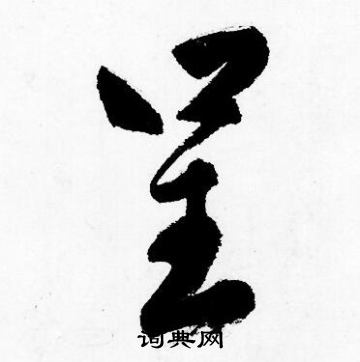 呈
词典网